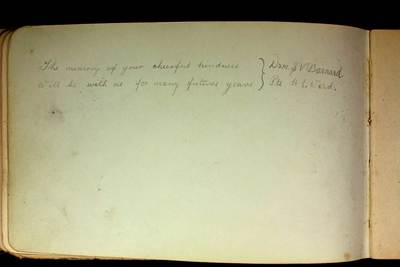 The memory of your cheerful kindness } Dvr. J V Barnard
Will be with us for many future years } Pte H Ward.